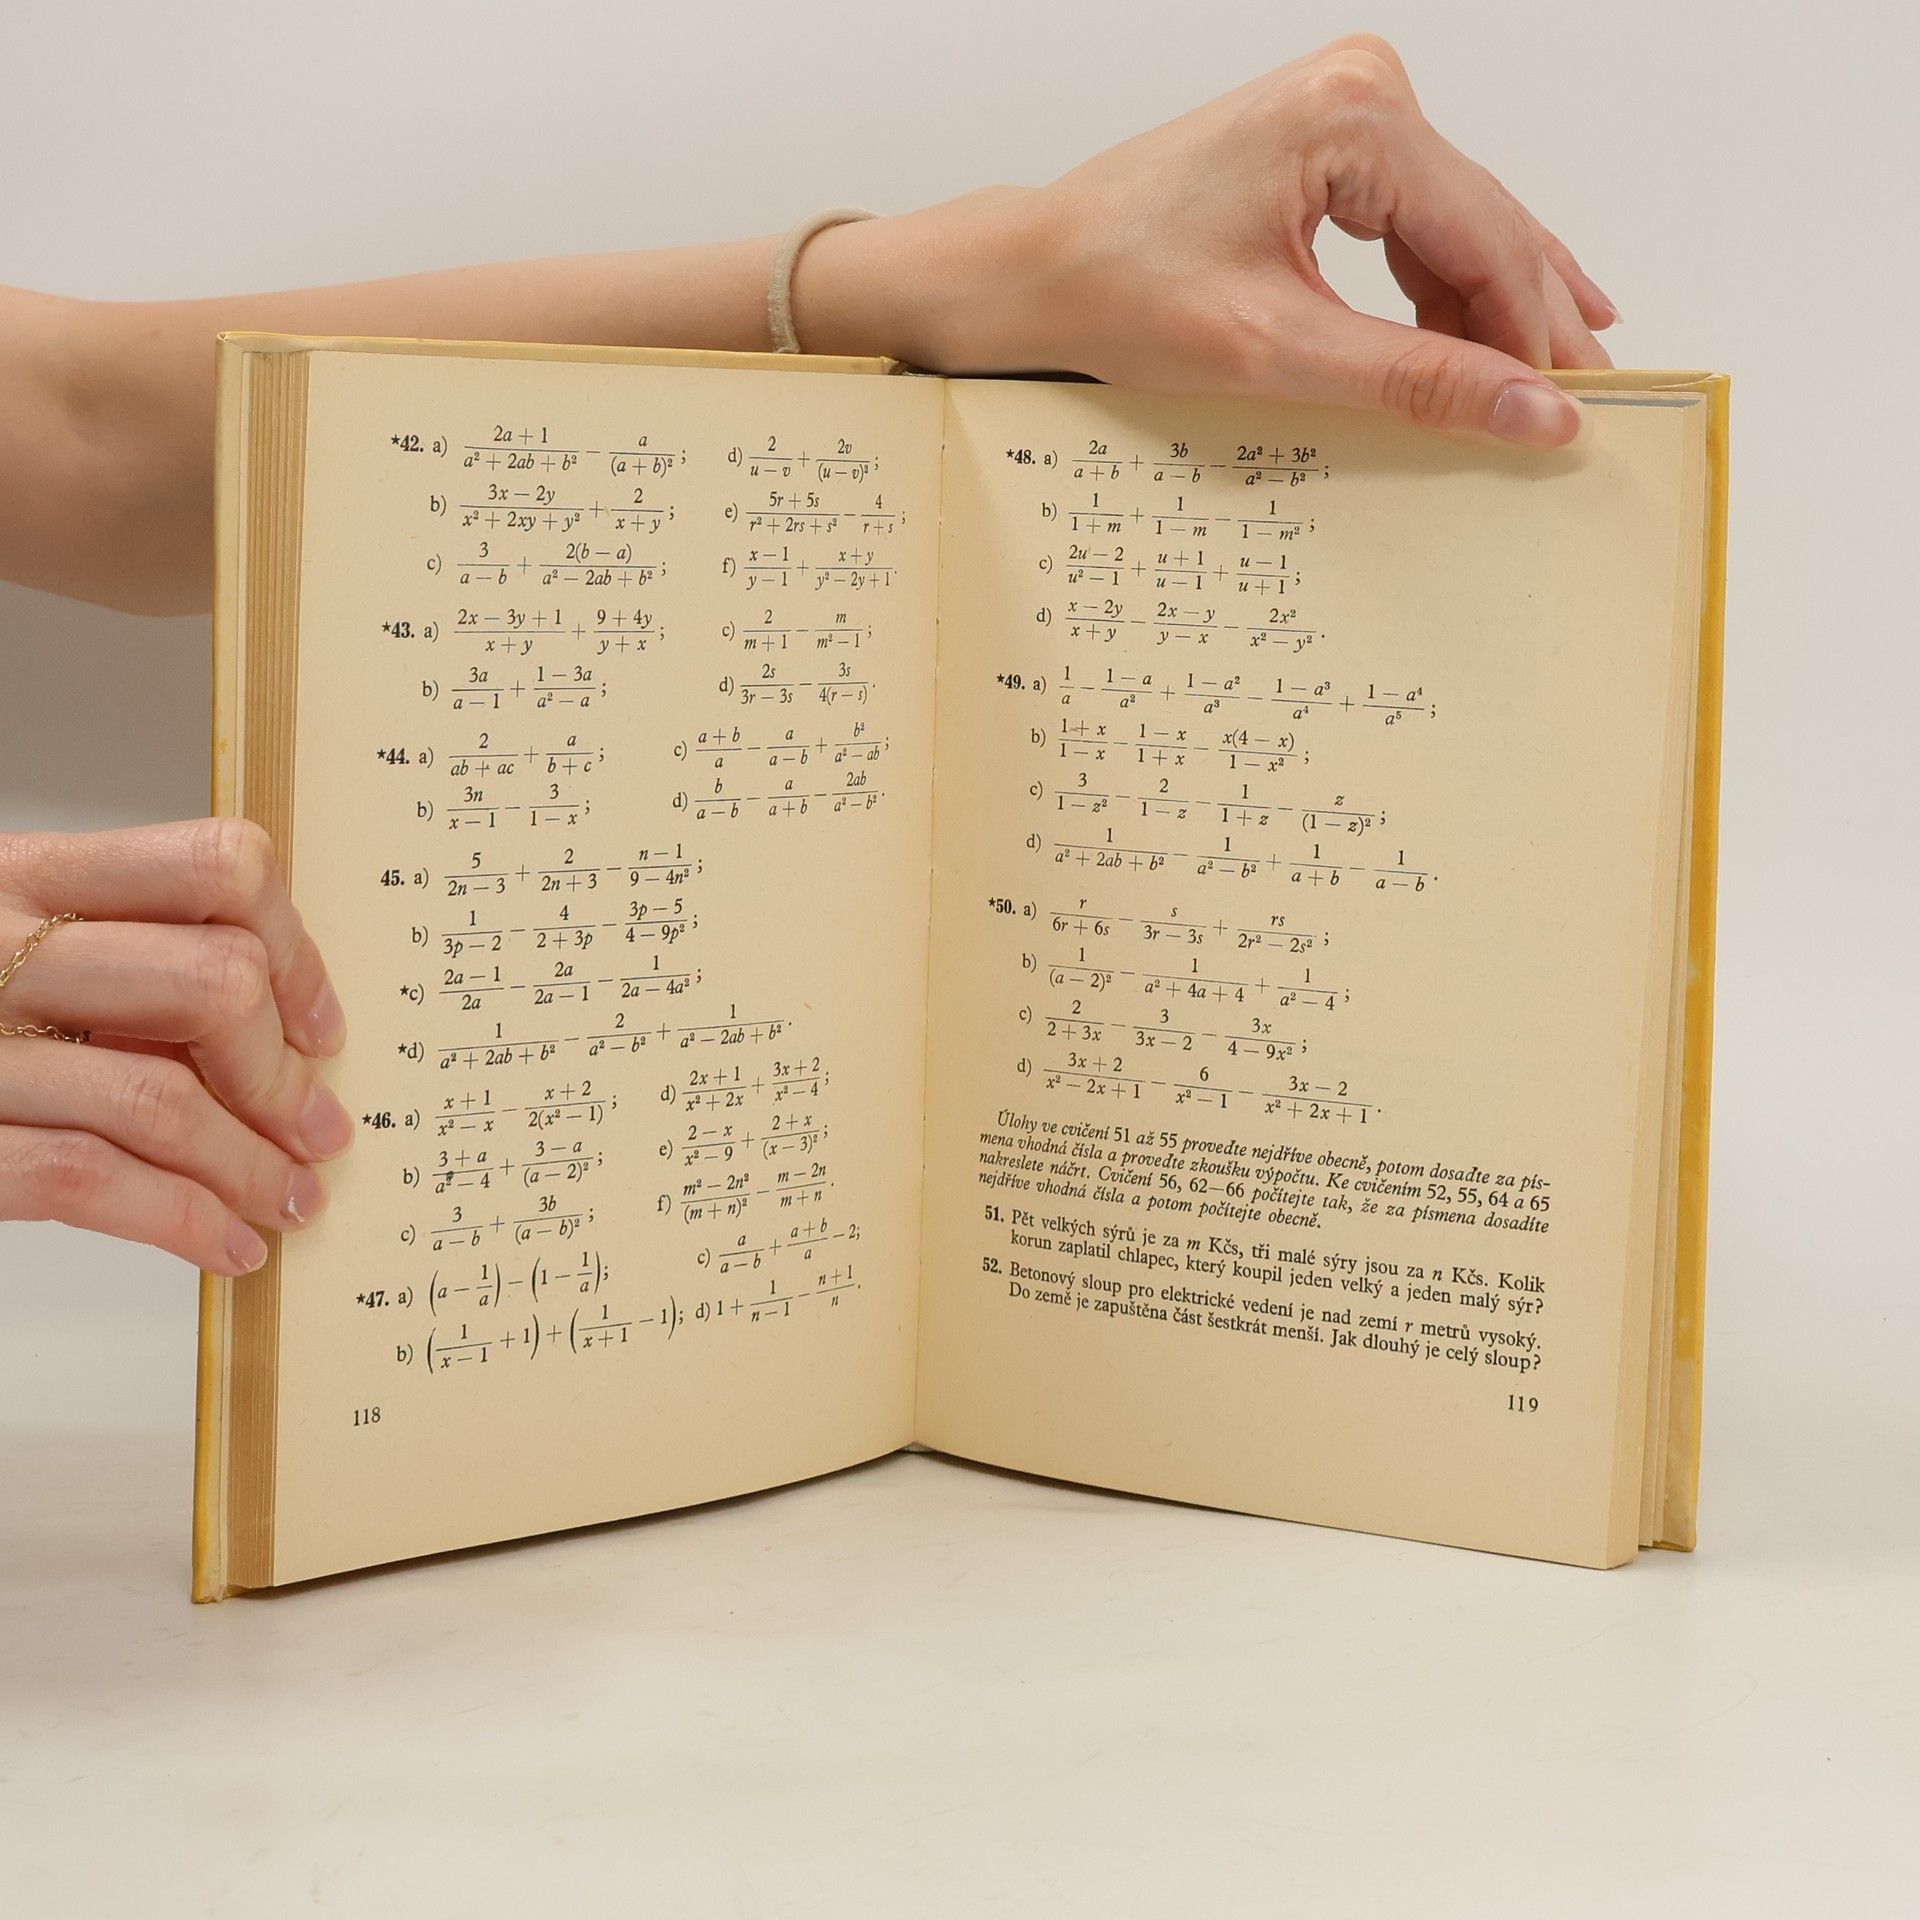 *42. a) \frac{2a + 1}{a² + 2ab + b²} − \frac{a}{(a + b)²}; d) \frac{2}{u − v} + \frac{2v}{(u − v)²};
b) \frac{3x − 2y}{x² + 2xy + y²} + \frac{2}{x + y}; e) \frac{5r + 5s}{r² + 2rs + s²} − \frac{4}{r + s};
c) \frac{3}{a − b} + \frac{2(b − a)}{a² − 2ab + b²}; f) \frac{x − 1}{y − 1} + \frac{x + y}{y² − 2y + 1}.
*43. a) \frac{2x − 3y + 1}{x + y} + \frac{9 + 4y}{y + x}; c) \frac{2}{m + 1} − \frac{m}{m² − 1};
b) \frac{3a}{a − 1} + \frac{1 − 3a}{a² − a}; d) \frac{2s}{3r − 3s} − \frac{3s}{4(r − s)}.
*44. a) \frac{2}{ab + ac} + \frac{a}{b + c}; c) \frac{a + b}{a} − \frac{a}{a − b} + \frac{b²}{a² − ab};
b) \frac{3n}{x − 1} − \frac{3}{1 − x}; d) \frac{b}{a − b} − \frac{a}{a + b} − \frac{2ab}{a² − b²}.
45. a) \frac{5}{2n − 3} + \frac{2}{2n + 3} − \frac{n − 1}{9 − 4n²};
b) \frac{1}{3p − 2} − \frac{4}{2 + 3p} − \frac{3p − 5}{4 − 9p²};
*c) \frac{2a − 1}{2a} − \frac{2a}{2a − 1} − \frac{1}{2a − 4a²};
*d) \frac{1}{a² + 2ab + b²} − \frac{2}{a² − b²} + \frac{1}{a² − 2ab + b²}.
*46. a) \frac{x + 1}{x² − x} − \frac{x + 2}{2(x² − 1)}; d) \frac{2x + 1}{x² + 2x} + \frac{3x + 2}{x² − 4};
b) \frac{3 + a}{a² − 4} + \frac{3 − a}{(a − 2)²}; e) \frac{2 − x}{x² − 9} + \frac{2 + x}{(x − 3)²};
c) \frac{3}{a − b} + \frac{3b}{(a − b)²}; f) \frac{m² − 2n²}{(m + n)²} − \frac{m − 2n}{m + n}.
*47. a) (a − \frac{1}{a}) − (1 − \frac{1}{a}); c) \frac{a}{a − b} + \frac{a + b}{a} − 2;
b) (\frac{1}{x − 1} + 1) + (\frac{1}{x + 1} − 1); d) 1 + \frac{1}{n − 1} − \frac{n + 1}{n}.
118
*48. a) \frac{2a}{a + b} + \frac{3b}{a − b} − \frac{2a² + 3b²}{a² − b²};
b) \frac{1}{1 + m} + \frac{1}{1 − m} − \frac{1}{1 − m²};
c) \frac{2u − 2}{u² − 1} + \frac{u + 1}{u − 1} + \frac{u − 1}{u + 1};
d) \frac{x − 2y}{x + y} − \frac{2x − y}{y − x} − \frac{2x²}{x² − y²}.
*49. a) \frac{1}{a} − \frac{1 − a}{a²} + \frac{1 − a²}{a³} − \frac{1 − a³}{a⁴} + \frac{1 − a⁴}{a⁵};
b) \frac{1 + x}{1 − x} − \frac{1 − x}{1 + x} − \frac{x(4 − x)}{1 − x²};
c) \frac{3}{1 − z²} − \frac{2}{1 − z} − \frac{1}{1 + z} − \frac{z}{(1 − z)²};
d) \frac{1}{a² + 2ab + b²} − \frac{1}{a² − b²} + \frac{1}{a + b} − \frac{1}{a − b}.
*50. a) \frac{r}{6r + 6s} − \frac{s}{3r − 3s} + \frac{rs}{2r² − 2s²};
b) \frac{1}{(a − 2)²} − \frac{1}{a² + 4a + 4} + \frac{1}{a² − 4};
c) \frac{2}{2 + 3x} − \frac{3}{3x − 2} − \frac{3x}{4 − 9x²};
d) \frac{3x + 2}{x² − 2x + 1} − \frac{6}{x² − 1} − \frac{3x − 2}{x² + 2x + 1}.
Úlohy ve cvičení 51 až 55 proveďte nejdříve obecně, potom dosaďte za pís-
mena vhodná čísla a proveďte zkoušku výpočtu. Ke cvičením 52, 55, 64 a 65
nakreslete náčrt. Cvičení 56, 62—66 počítejte tak, že za písmena dosadíte
nejdříve vhodná čísla a potom počítejte obecně.
51. Pět velkých sýrů je za m Kčs, tři malé sýry jsou za n Kčs. Kolik
korun zaplatil chlapec, který koupil jeden velký a jeden malý sýr?
52. Betonový sloup pro elektrické vedení je nad zemí r metrů vysoký.
Do země je zapuštěna část šestkrát menší. Jak dlouhý je celý sloup?
119